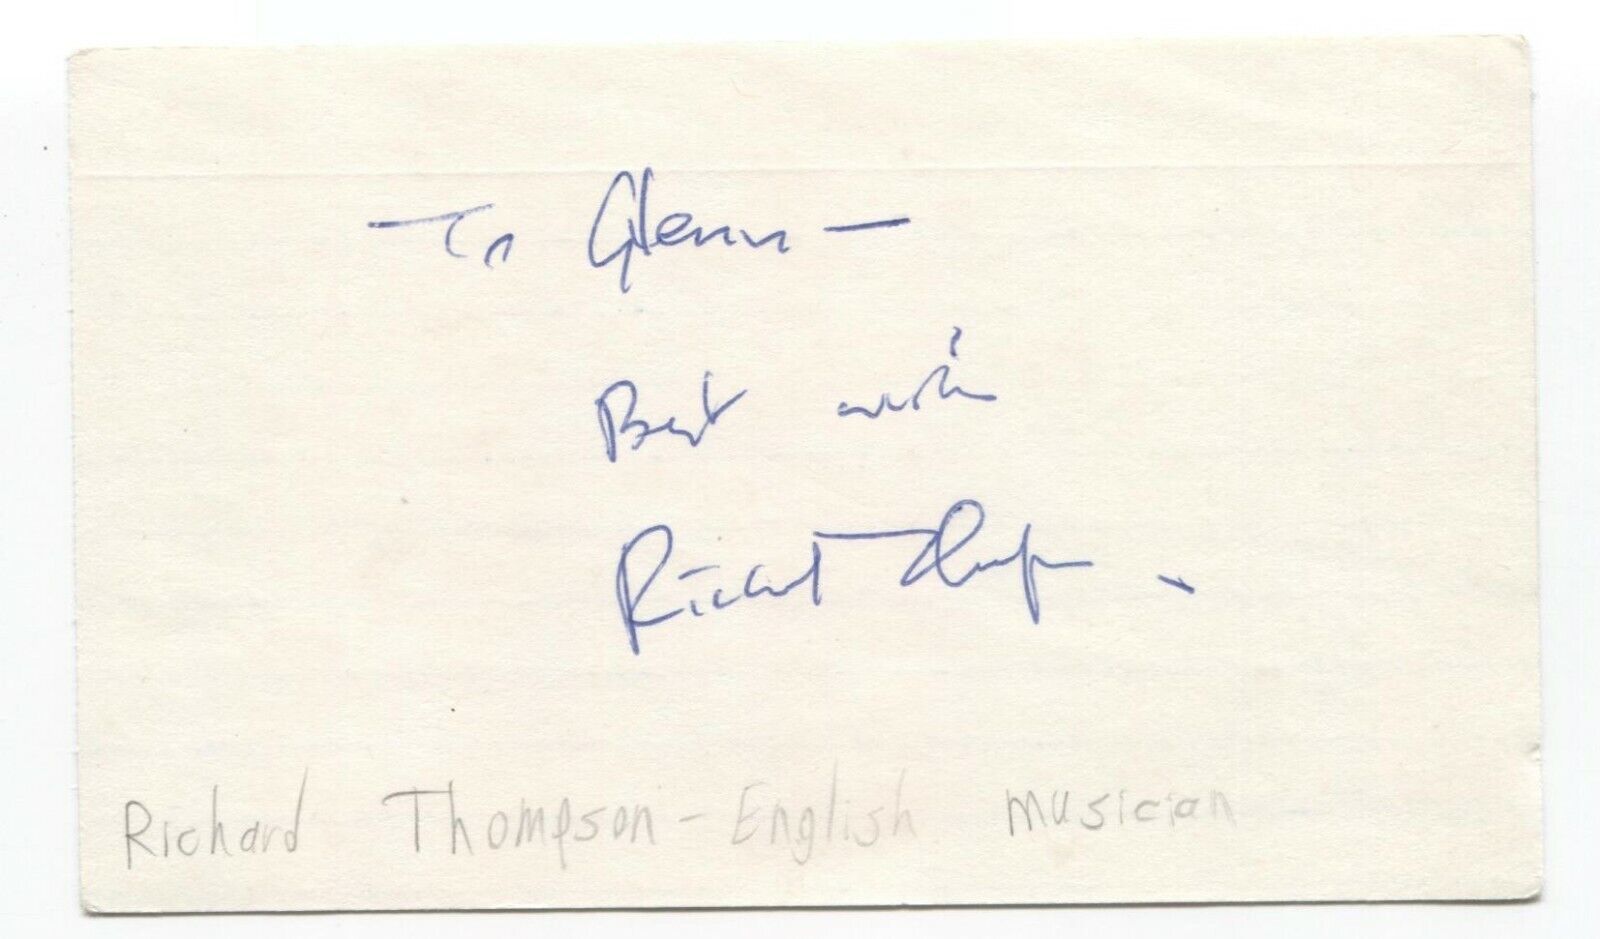 To Glenn -
Best wishes
Richard Thompson.
Richard Thompson - English musician